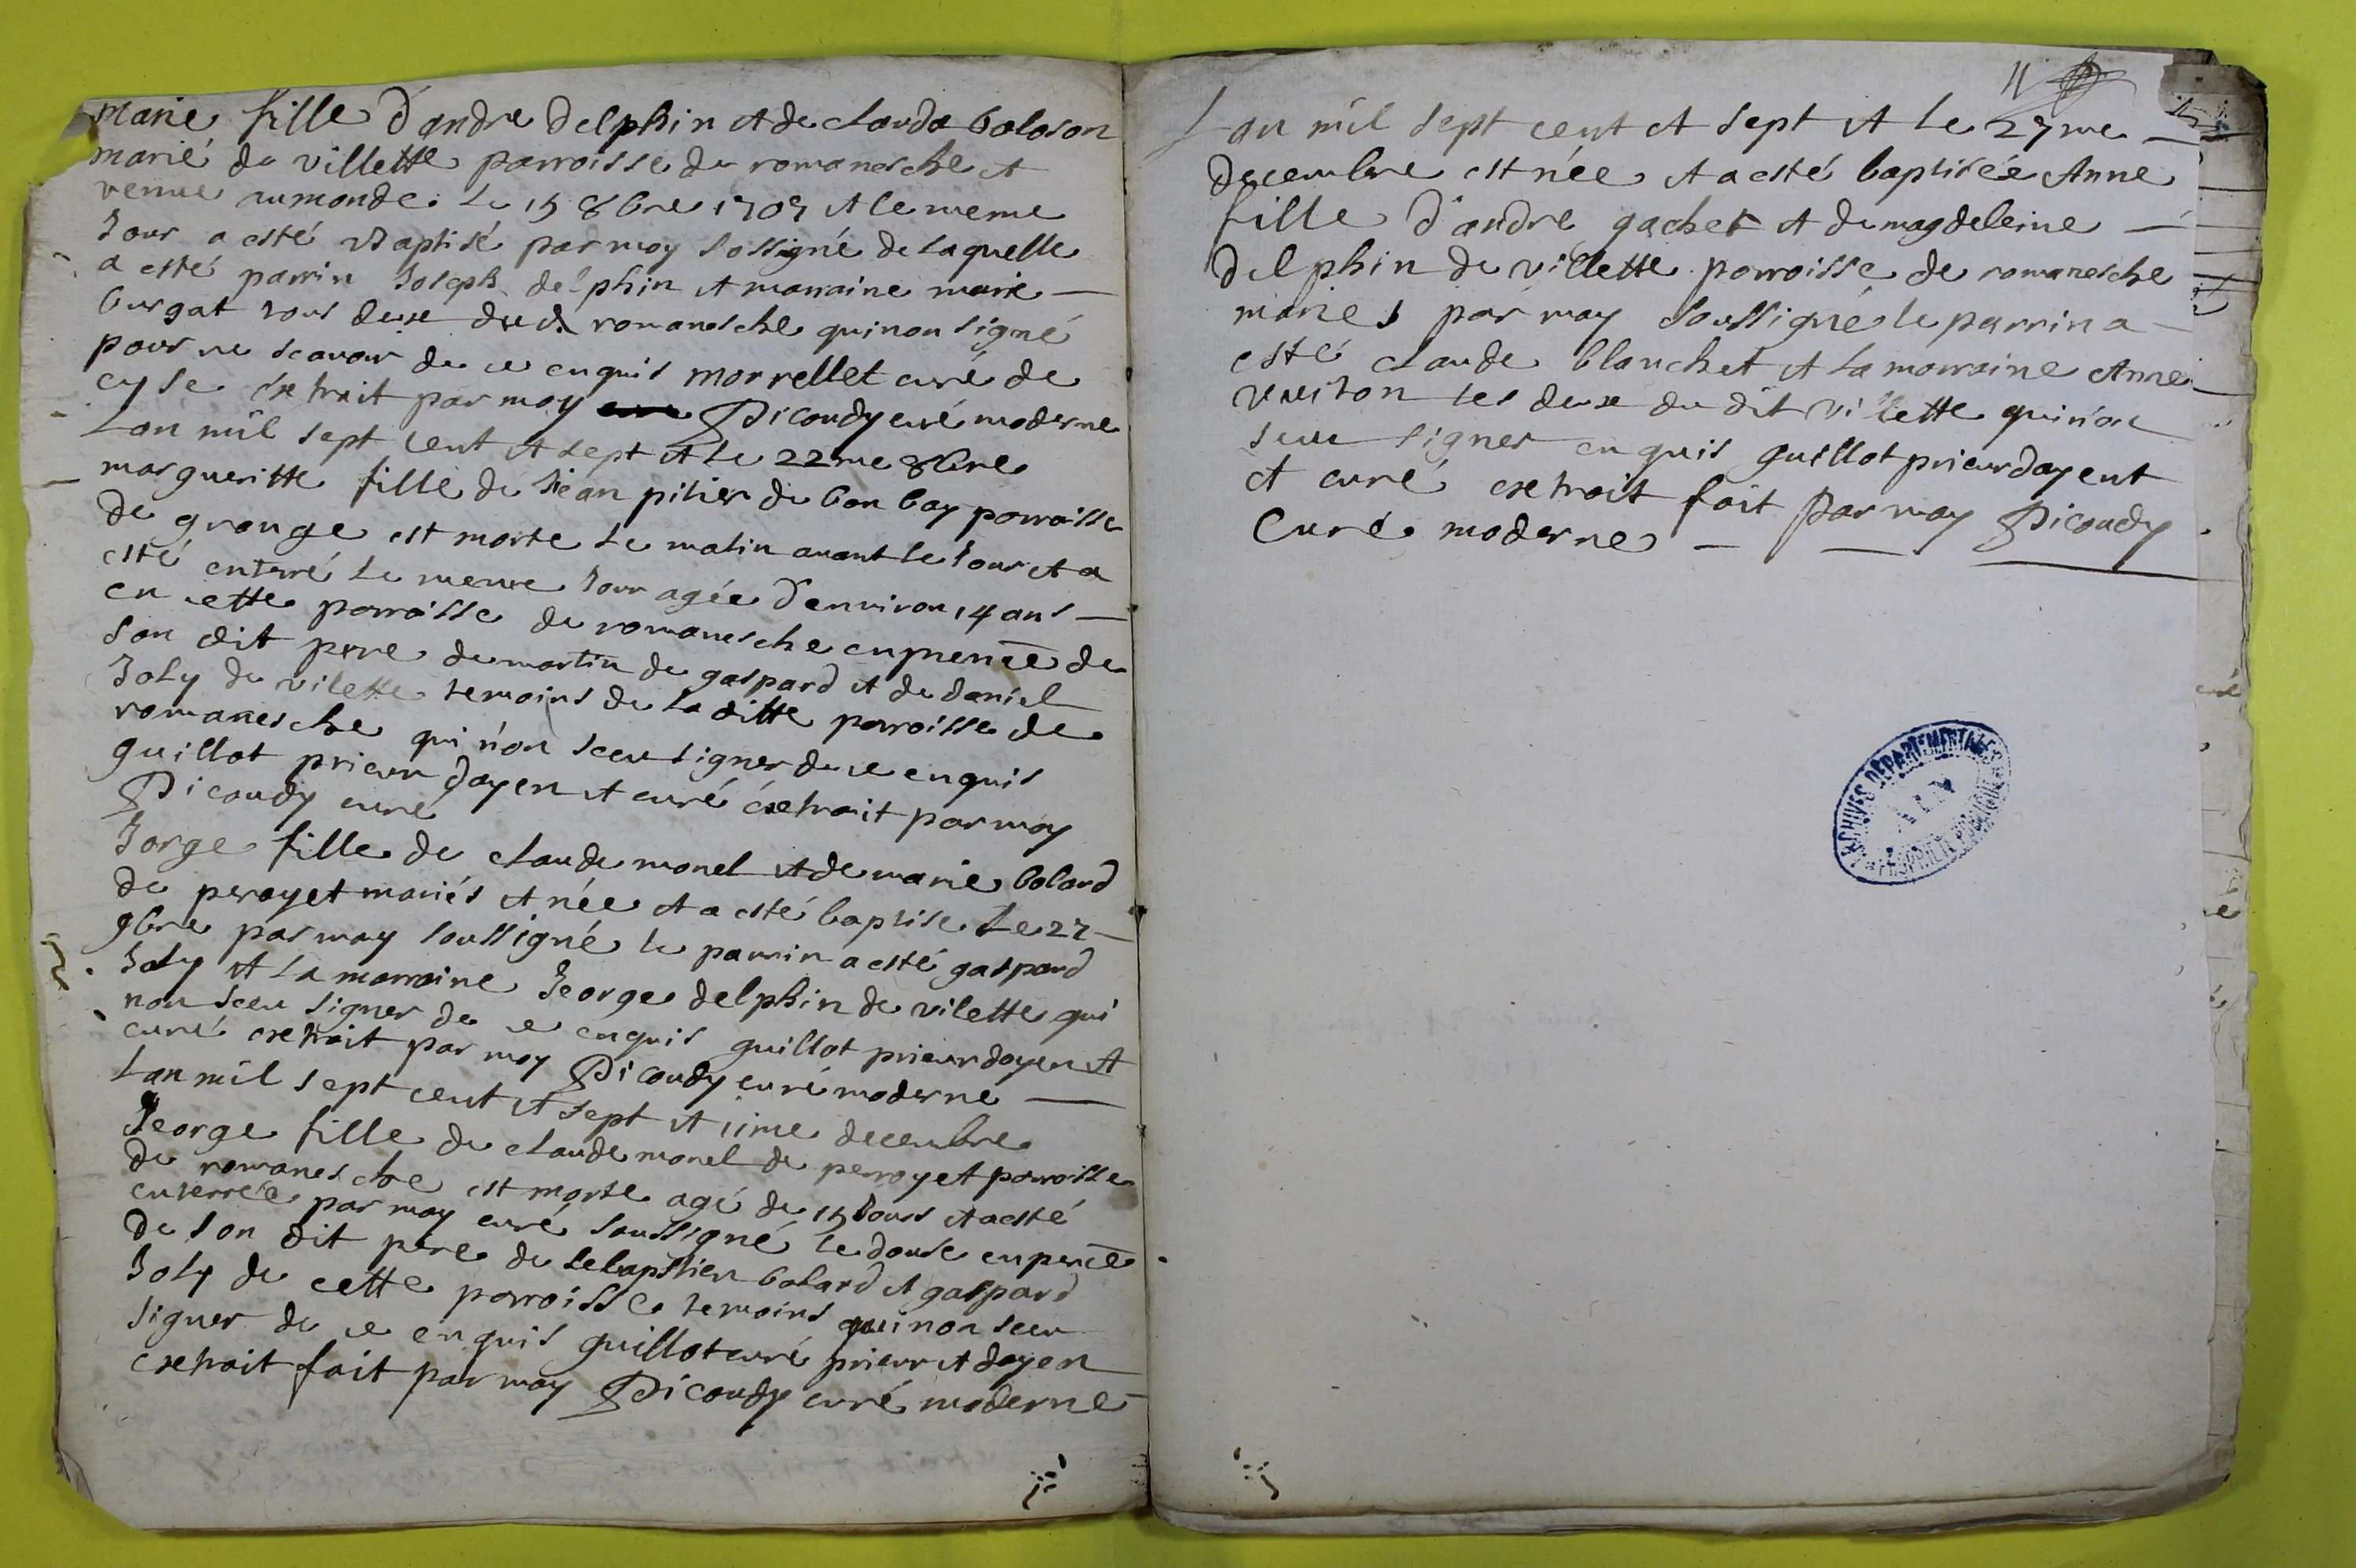 marie fille d'andre delphin et de clauda boloson
marié de villette parroisse de romanesche et
venue aumonde le 15 8bre 1707 et le meme
Jour a esté Baptisé par moy sossigné de laquelle
a esté parrin Joseph delphin et marraine marie
burgat tous deux dud romanesche quinon signé
pour ne scavoir de ce enquis morrellet curé de
cyse extrait par moy Picoudy curé moderne
Lan mil sept cent et sept et le 22me 8bre
margueritte fille de Jean pitier de bon bay parroisse
de grange est morte le matin avant le Jour et a
esté enterré le meme Jour agée d'environ 14 ans
en cette parroisse de romanesche enpnence de
son dit pere de martin de gaspard et de daniel
Joly de vilette temoins de la ditte parroisse de
romanesche qui n'on sceu signer de ce enquis
guillot prieur doyen et curé éxetrait par moy
Picoudy curé
Jorge fille de claude monel et de marie bolard
de peroyet mariés et née et a esté baptise Le 27
9bre par moy soussigné le parrin a esté gaspard
Joly et La marraine Jeorge delphin de vilette qui
non sceu signer de ce enquis guillot prieur doyen et
curé exetrait par moy Picoudy curé moderne
Lan mil sept cent et sept et 11me decembre
Jeorge fille de claude monel de perroyet parroisse
de romanesche est morte agé de 15 Jours et a esté
enterrée par moy curé soussigné le douse enpence
de son dit père de sebapstien bolard et gaspard
Joly de cette parroisse temoins quinon sceu
signer de ce enquis guillot curé prieur et doyen
exetrait fait par moy Picoudy curé moderne
11
Lan mil sept cent et sept et le 27me
decembre est née et a esté baptisée Anne
fille d'andre gachet et de magdeleine
delphin de villette parroisse de romanesche
maries par moy soussigné le parrin a
esté claude blanchet et la marraine Anne
les deux du dit villette quinon
sceu signer enquis guillot prieur doyent
et curé exetrait fait Par moy Picoudy
Curé moderne
ARCHIVES DÉPARTEMENTALES
AIN
PROPRIÉTÉ PUBLIQUE